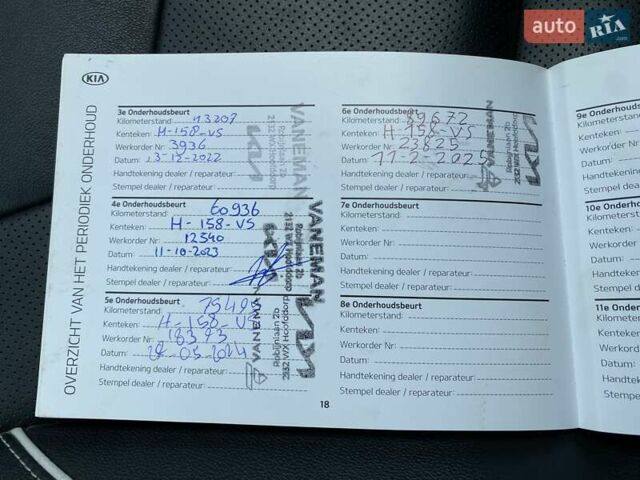 auto RIA
.com
KIA
OVERZICHT VAN HET PERIODIEK ONDERHOUD
3e Onderhoudsbeurt
Kilometerstand: 13207
Kenteken: H-158-VS
Werkorder Nr: 3936
Datum: 13-12-2022
Handtekening dealer / reparateur:
Stempel dealer / reparateur:
VANEMAN
Robijnlaan 2b
2132 WX Hoofddorp
KIA
4e Onderhoudsbeurt
Kilometerstand: 60936
Kenteken: H-158-VS
Werkorder Nr: 12540
Datum: 11-10-2023
Handtekening dealer / reparateur:
Stempel dealer / reparateur:
VANEMAN
Robijnlaan 2b
2132 WX Hoofddorp
KIA
5e Onderhoudsbeurt
Kilometerstand: 75493
Kenteken: H-158-VS
Werkorder Nr: 18373
Datum: 22-05-2024
Handtekening dealer / reparateur:
Stempel dealer / reparateur:
VANEMAN
Robijnlaan 2b
2132 WX Hoofddorp
KIA
18
6e Onderhoudsbeurt
Kilometerstand: 89672
Kenteken: H-158-VS
Werkorder Nr: 23825
Datum: 11-2-2025
Handtekening dealer / reparateur:
Stempel dealer / reparateur:
VANEMAN
Robijnlaan 2b
2132 WX Hoofddorp
KIA
7e Onderhoudsbeurt
Kilometerstand:
Kenteken:
Werkorder Nr:
Datum:
Handtekening dealer / reparateur:
Stempel dealer / reparateur:
8e Onderhoudsbeurt
Kilometerstand:
Kenteken:
Werkorder Nr:
Datum:
Handtekening dealer / reparateur:
Stempel dealer / reparateur:
9e Onderhoudsbeurt
Kilometerstand:
Kenteken:
Werkorder
Datum:
Handtekening
Stempel
10e
Kilometerstand
Kenteken:
Werkorder
Datum:
11e Onderhoud
Kilometerstand
Kenteken:
Werkorder
Datum: